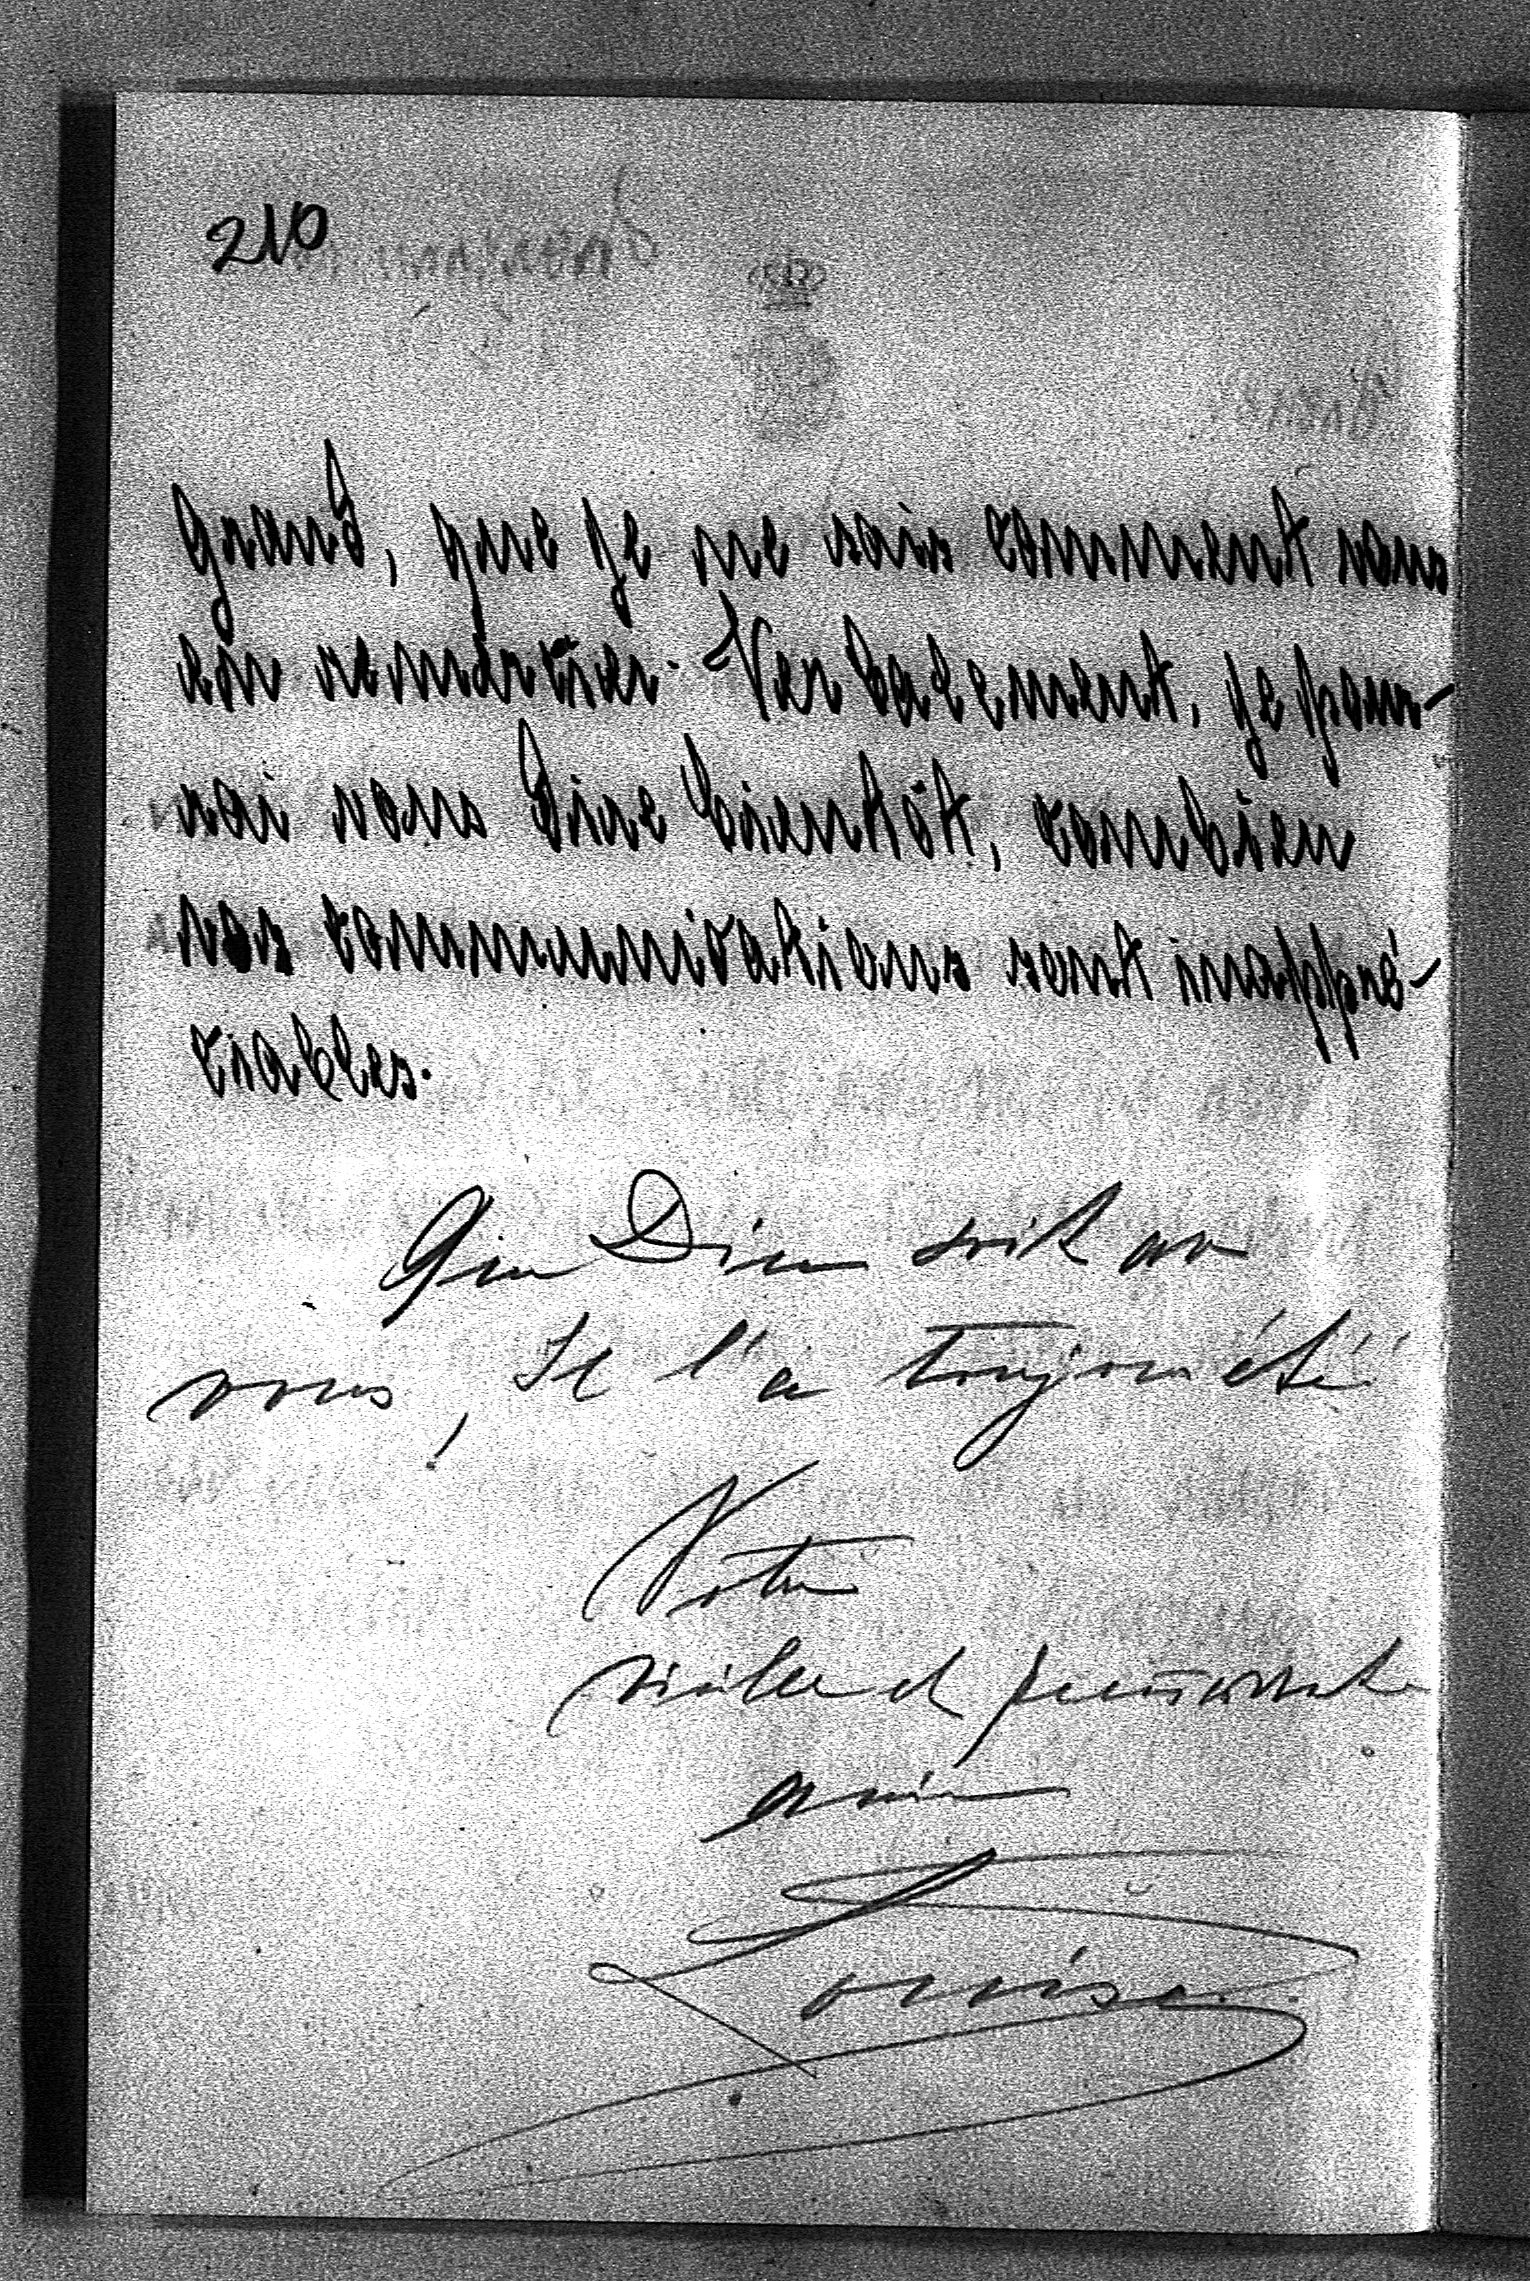 210
grand, que je ne sais comment vous
en remercier. Verbalement, je pour-
rai vous dire bientôt, combien
vos communications sont inappré-
ciables.
Que Dieu soit av
vous, Il l'a toujours été!
Votre
vieille et
amie
Louise.